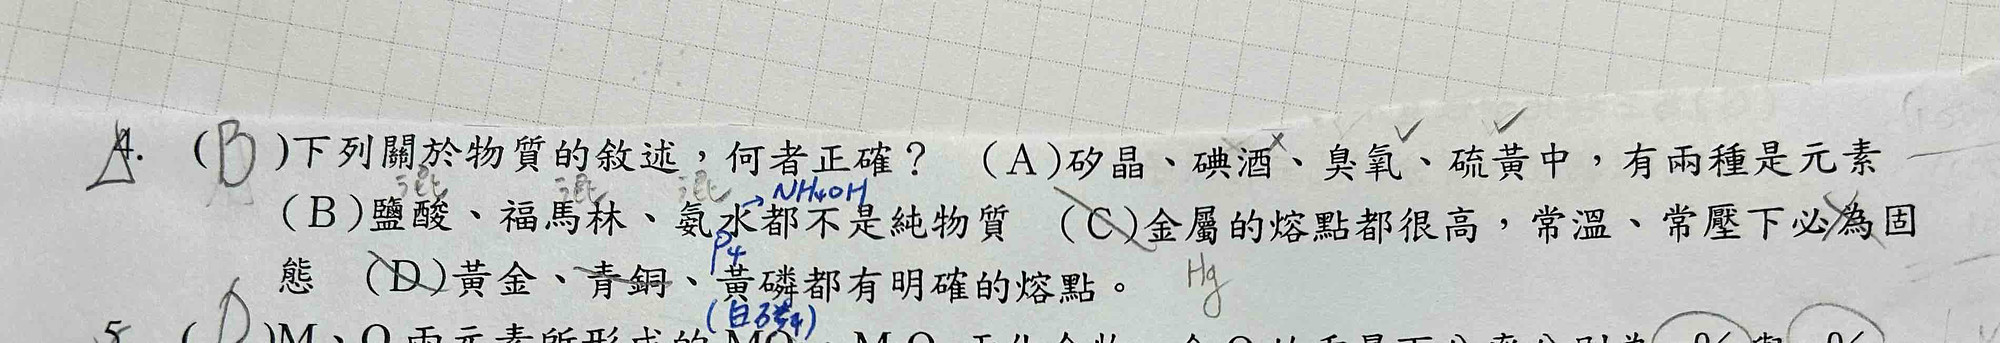 4. (B)下列關於物質的敘述，何者正確？ (A)矽晶、碘酒、臭氧、硫黃中，有兩種是元素
混 混 混 →NH4OH
(B)鹽酸、福馬林、氨水都不是純物質 (C)金屬的熔點都很高，常溫、常壓下必為固
P4
態 (D)黃金、青銅、黃磷都有明確的熔點。 Hg
(白磷)
5. (D)M、